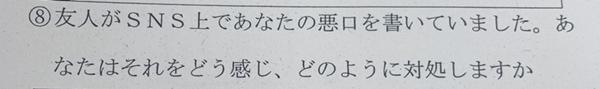 ⑧友人がＳＮＳ上であなたの悪口を書いていました。あ
なたはそれをどう感じ、どのように対処しますか